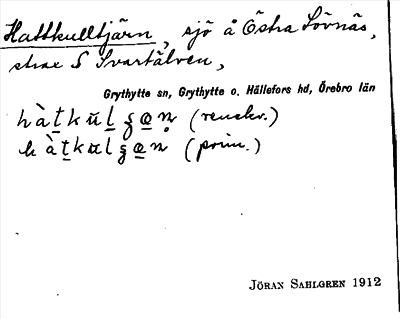 Hattkulltjärn, sjö å Östra Lövnäs,
strax S Svartälven,
Grythytte sn, Grythytte o. Hällefors hd, Örebro län
(renskr.)
(prim.)
JÖRAN SAHLGREN 1912